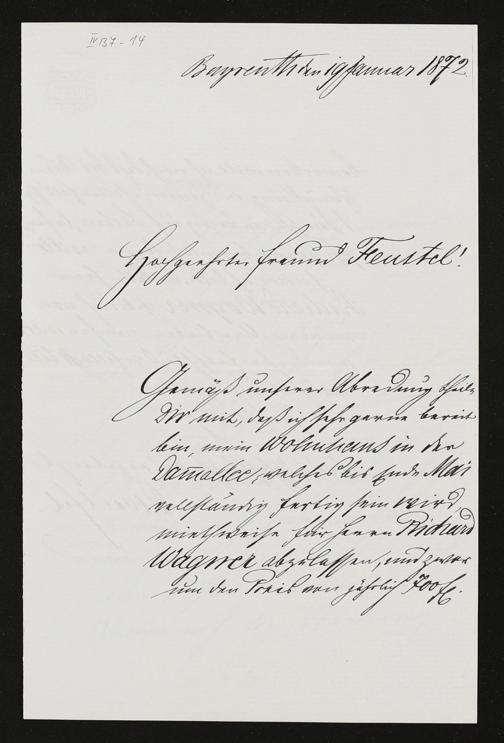 IV B7-14
Bayreuth den 19 Januar 1872
Hochgeehrter Freund Feustel!
Gemäß unserer Abredung theile
Dir mit, daß ich sehr gerne bereit
bin, mein Wohnhaus in der
Damallee, welches bis Ende Mai
vollständig fertig sein wird,
miethweise für Herrn Richard
Wagner abzulassen, und zwar
um den Preis von jährlich 700 fl.